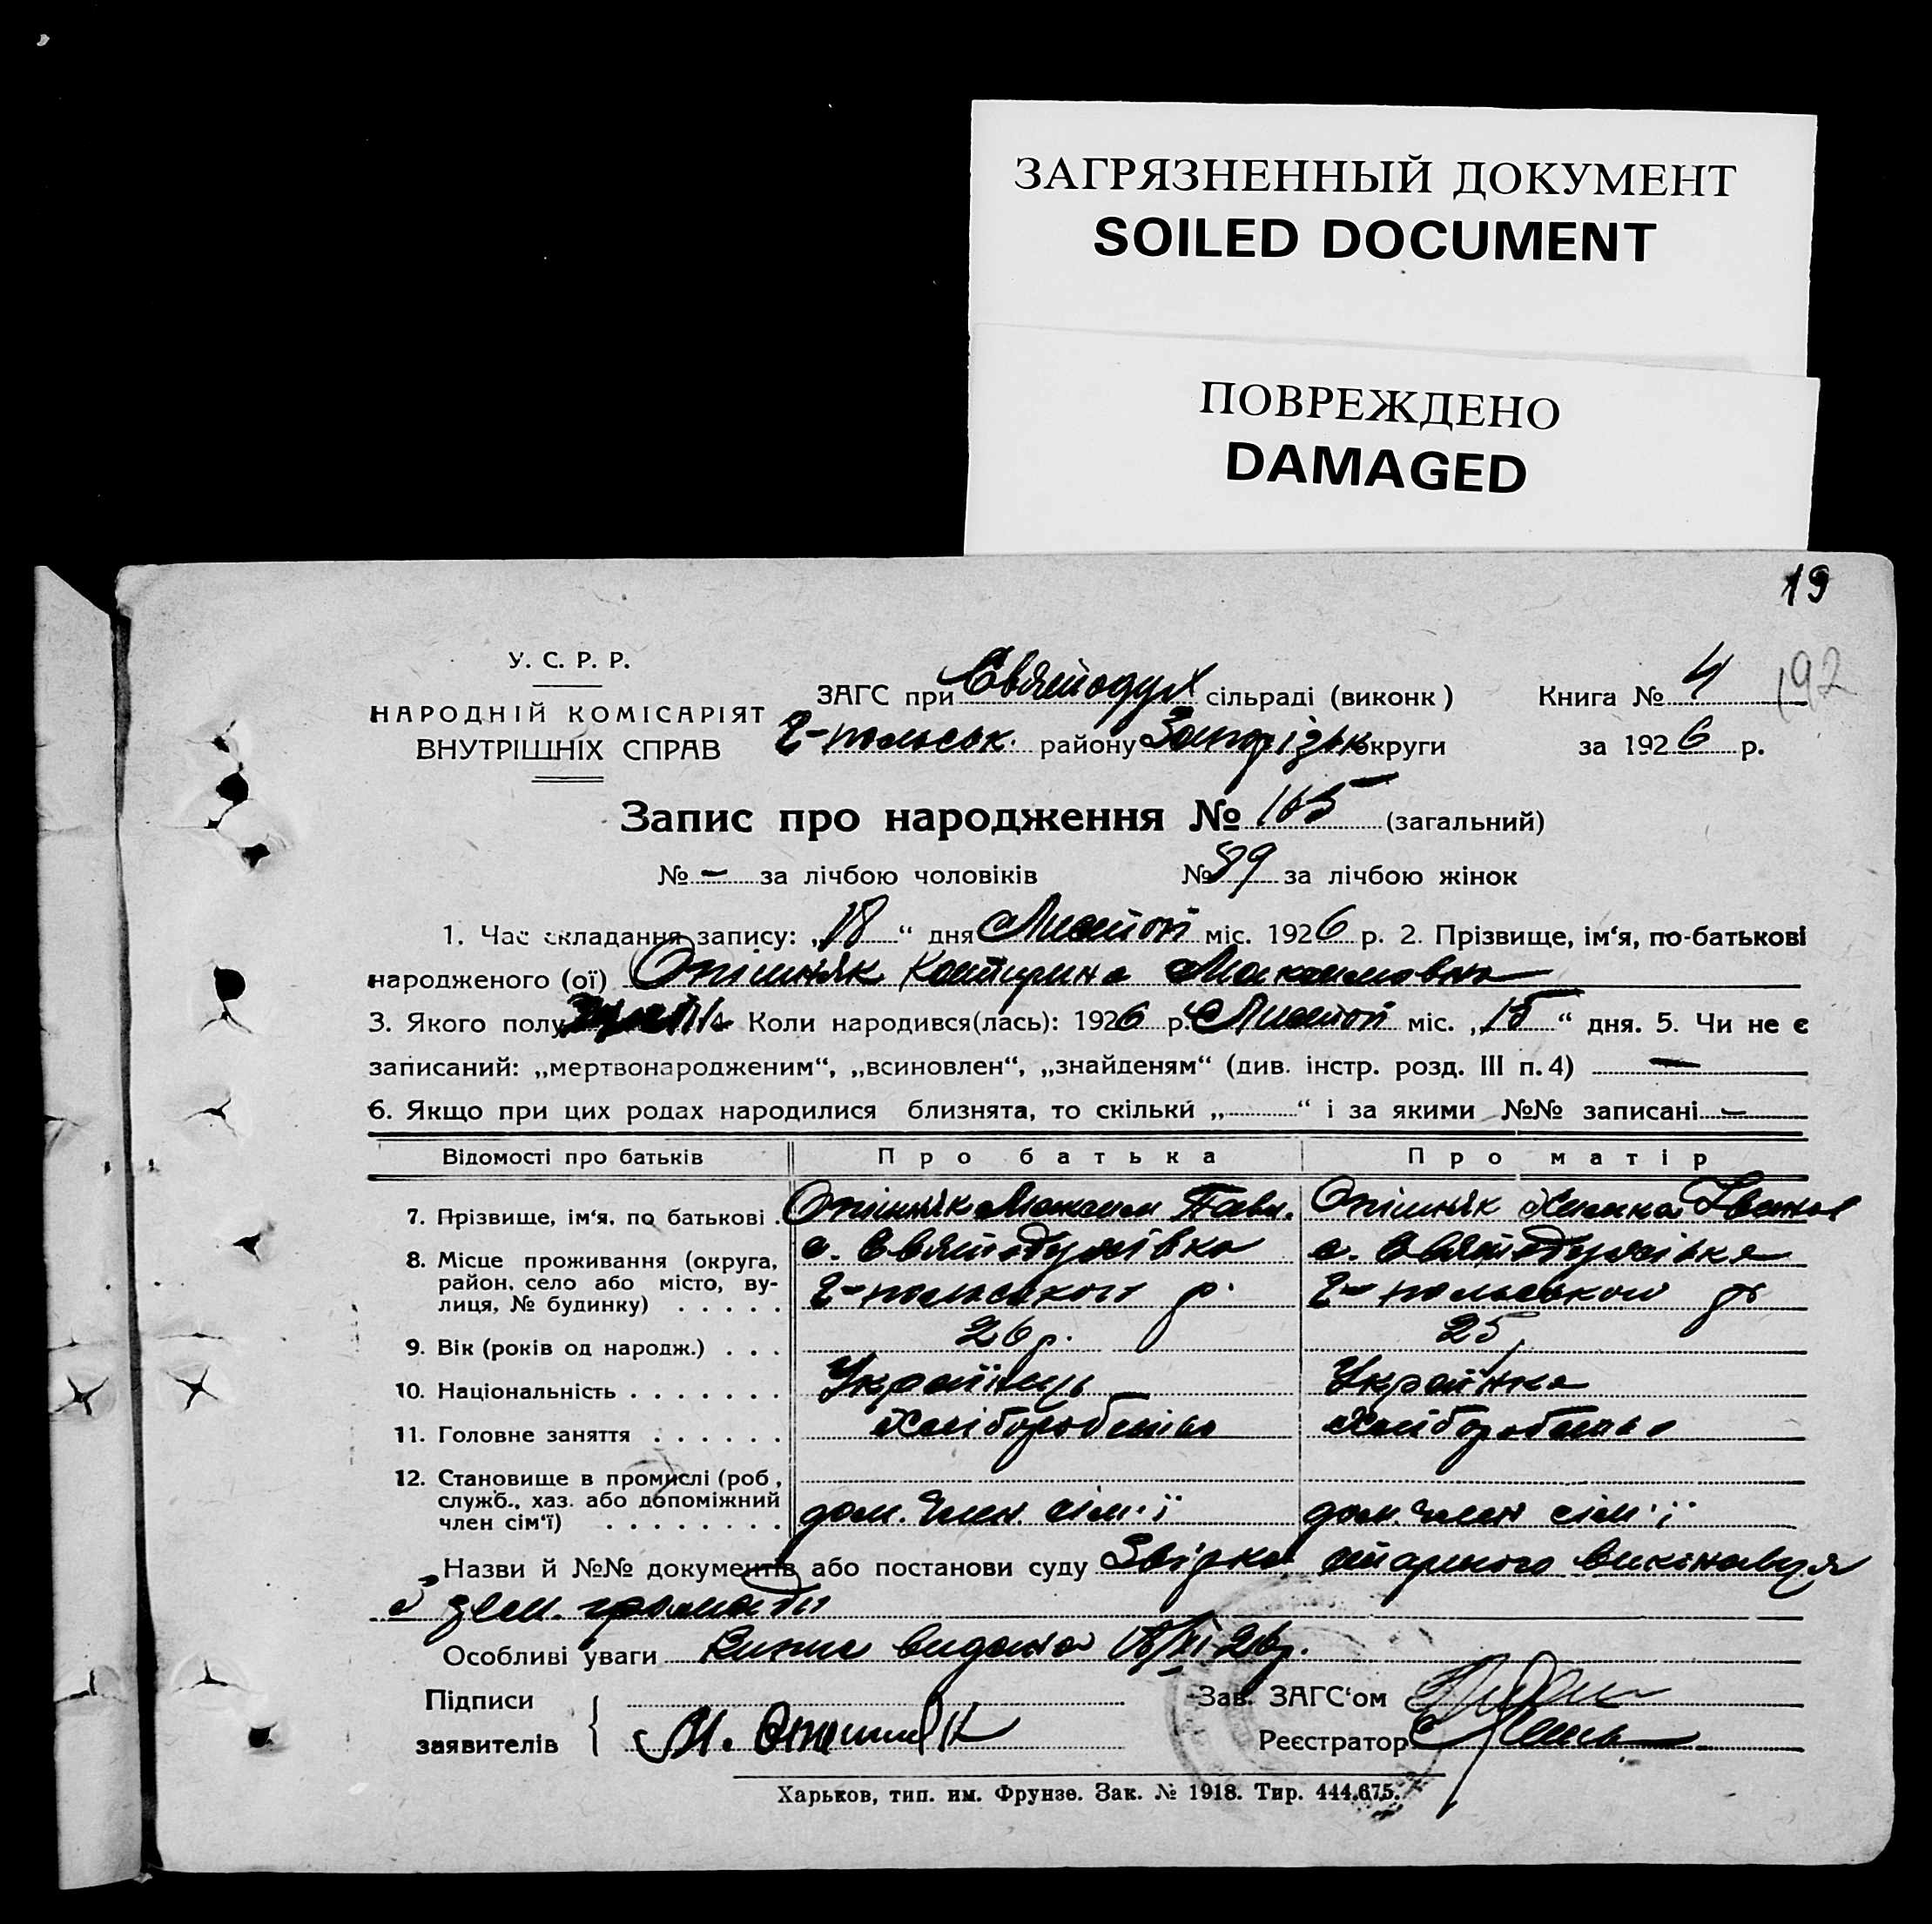 ЗАГРЯЗНЕННЫЙ ДОКУМЕНТ
SOILED DOCUMENT
ПОВРЕЖДЕНО
DAMAGED
19
192
У. С. Р. Р.
НАРОДНІЙ КОМІСАРІЯТ
ВНУТРІШНІХ СПРАВ
ЗАГС при Святодух сільраді (виконк)
Г-польськ. району Запорізьк округи
Книга № 4
за 1926 р.
Запис про народження № 165 (загальний)
№ – за лічбою чоловіків № 89 за лічбою жінок
1. Час складання запису: „18“ дня Листоп міс. 1926 р. 2. Прізвище, ім‘я, по-батькові
народженого (ої) Опішняк Катирина Максимовна
3. Якого полу 4. Коли народився(лась): 1926 р. Листоп міс. „15“ дня. 5. Чи не є
записаний: „мертвонародженим“, „всиновлен“, „знайденям“ (див. інстр. розд. III п. 4) —
6. Якщо при цих родах народилися близнята, то скільки „ “ і за якими №№ записані –
Відомості про батьків Про батька Про матір
7. Прізвище, ім‘я, по батькові . Опішняк Максим Павл. Опішняк Іванов
8. Місце проживання (округа, с. Святодухівка с. Святодухівка
район, село або місто, ву-
лиця, № будинку) . . . . . Г-польського р. Г-польської р
9. Вік (років од народж.) . . . 26 р. 25 р
10. Національність . . . . . . . Українець Українка
11. Головне заняття . . . . . . Хліборобство Хліборобство
12. Становище в промислі (роб.,
служб., хаз. або допоміжний
член сім‘ї) . . . . . . . . дом. член сім'ї дом. член сім'ї
Назви й №№ документів або постанови суду Звірка виконавця
з зем. громади
Особливі уваги видана 18/XI 26 р.
Підписи
заявителів
М. Опішняк
Зав. ЗАГС‘ом
Реєстратор
Харьков, тип. им. Фрунзе. Зак. № 1918. Тир. 444.675.